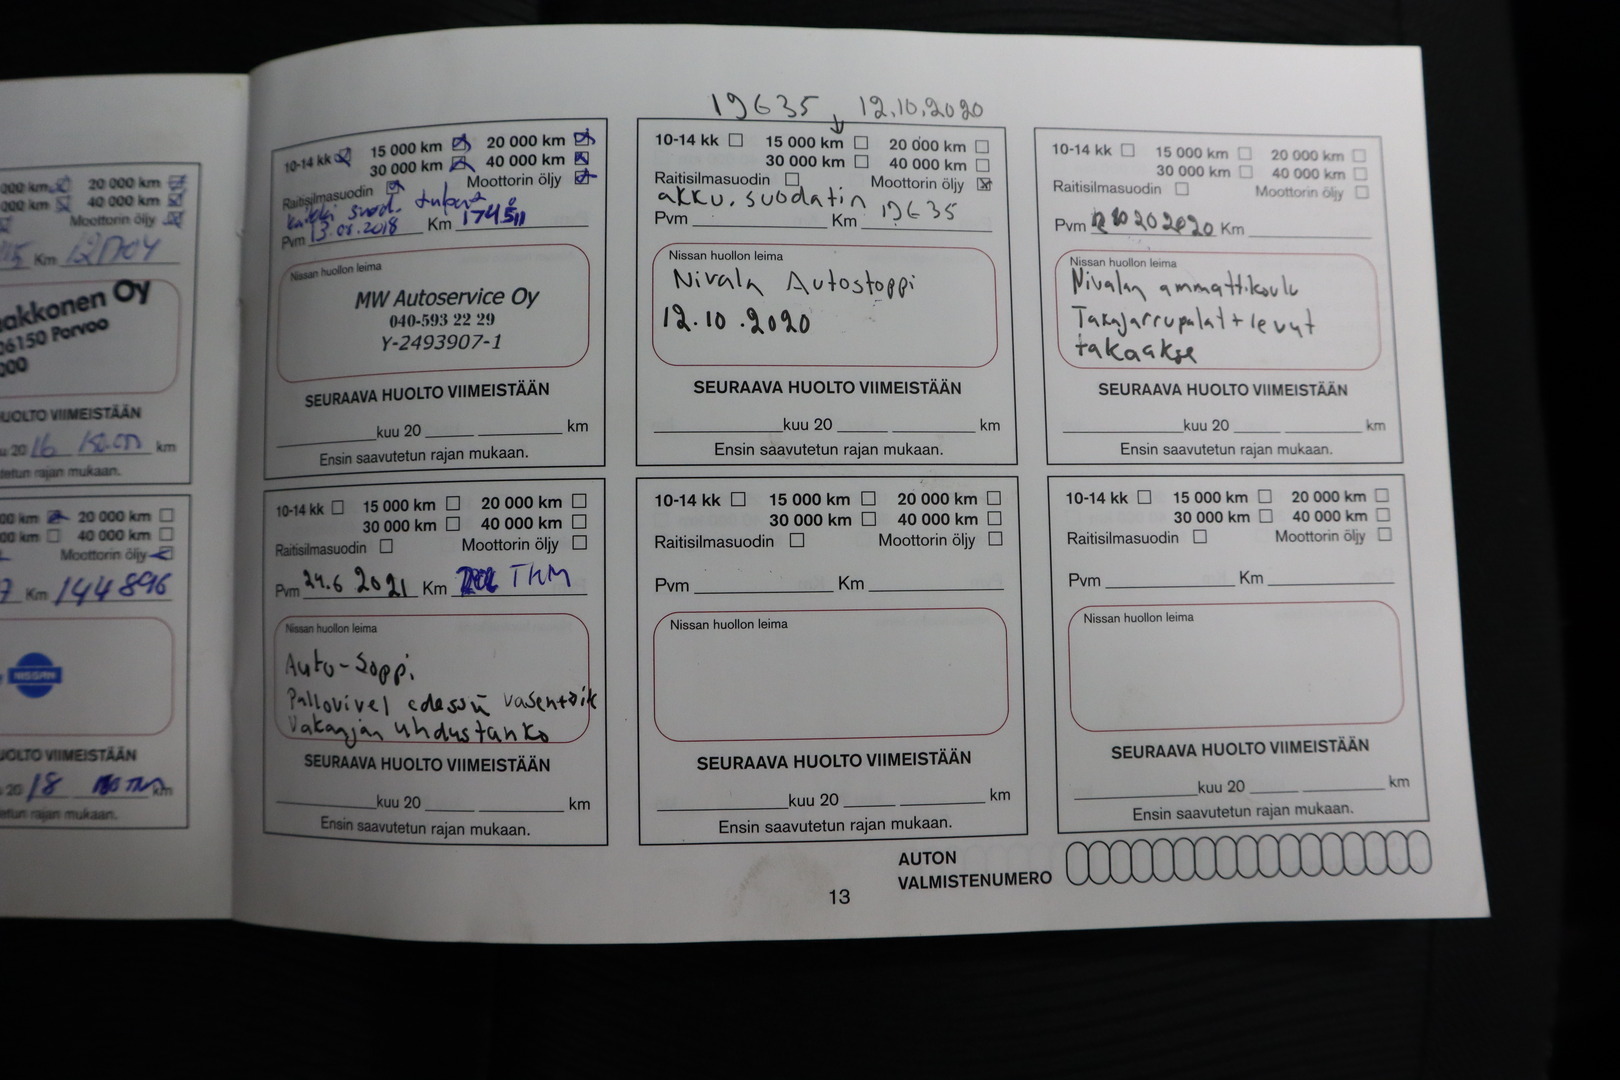 19635 12.10.2020
000 km 20 000 km
000 km 40 000 km
Moottorin öljy
15 Km
akkonen Oy
06150 Porvoo
000
UOLTO VIIMEISTÄÄN
u 20 16 km
tetun rajan mukaan.
00 km 20 000 km
00 km 40 000 km
Moottorin öljy
7 Km 144896
NISSAN
UOLTO VIIMEISTÄÄN
20 18 km
etun rajan mukaan.
10-14 kk 15 000 km 20 000 km
30 000 km 40 000 km
Raitisilmasuodin Moottorin öljy
kaikki suod.
Pvm 13.08.2018 Km
Nissan huollon leima
MW Autoservice Oy
040-593 22 29
Y-2493907-1
SEURAAVA HUOLTO VIIMEISTÄÄN
kuu 20 km
Ensin saavutetun rajan mukaan.
10-14 kk 15 000 km 20 000 km
30 000 km 40 000 km
Raitisilmasuodin Moottorin öljy
akku. suodatin
Pvm Km 19635
Nissan huollon leima
Nivala Autostoppi
12.10.2020
SEURAAVA HUOLTO VIIMEISTÄÄN
kuu 20 km
Ensin saavutetun rajan mukaan.
10-14 kk 15 000 km 20 000 km
30 000 km 40 000 km
Raitisilmasuodin Moottorin öljy
Pvm Km
Nissan huollon leima
Nivalan ammattikoulu
Takajarrupalat + levyt
takaakse
SEURAAVA HUOLTO VIIMEISTÄÄN
kuu 20 km
Ensin saavutetun rajan mukaan.
10-14 kk 15 000 km 20 000 km
30 000 km 40 000 km
Raitisilmasuodin Moottorin öljy
Pvm 24.6 2021 Km TKM
Nissan huollon leima
Auto-Soppi
Pallonivel edessä vasen+oik
Vakaajan yhdystanko
SEURAAVA HUOLTO VIIMEISTÄÄN
kuu 20 km
Ensin saavutetun rajan mukaan.
10-14 kk 15 000 km 20 000 km
30 000 km 40 000 km
Raitisilmasuodin Moottorin öljy
Pvm Km
Nissan huollon leima
SEURAAVA HUOLTO VIIMEISTÄÄN
kuu 20 km
Ensin saavutetun rajan mukaan.
10-14 kk 15 000 km 20 000 km
30 000 km 40 000 km
Raitisilmasuodin Moottorin öljy
Pvm Km
Nissan huollon leima
SEURAAVA HUOLTO VIIMEISTÄÄN
kuu 20 km
Ensin saavutetun rajan mukaan.
AUTON
VALMISTENUMERO
13